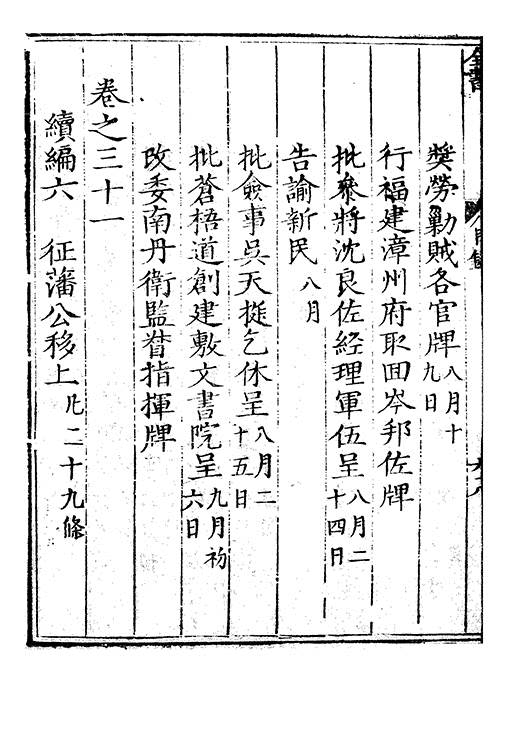 全書
目錄
奬勞勦賊各官牌八月十九日
行福建漳州府取回岑邦佐牌
批叅將沈良佐經理軍伍呈八月二十四日
告諭新民八月
批僉事吳天挺乞休呈八月二十五日
批蒼梧道創建敷文書院呈九月初六日
改委南丹衛監督指揮牌
卷之三十一
續編六 征藩公移上凡二十九條